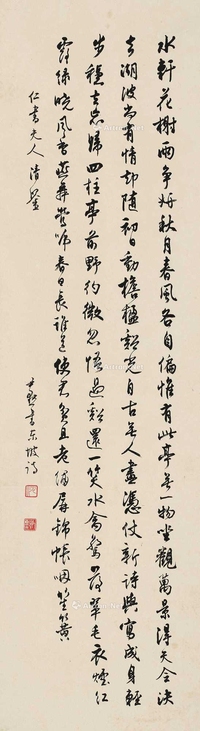 水軒花榭兩爭妍秋月春風各自偏惟有此亭無一物坐觀萬景得天全決
去湖波尚有情却隨初日動檐楹谿光自古無人畫憑仗新詩與寫成身輕
步穩去忘歸四柱亭前野彴微忽悟過谿還一笑水禽驚落翠毛衣煙紅
露綠曉風香燕舞鶯啼春日長誰道使君貧且老繡屏錦帳咽笙簧
仁夫人清鑒
尹默書東坡詩